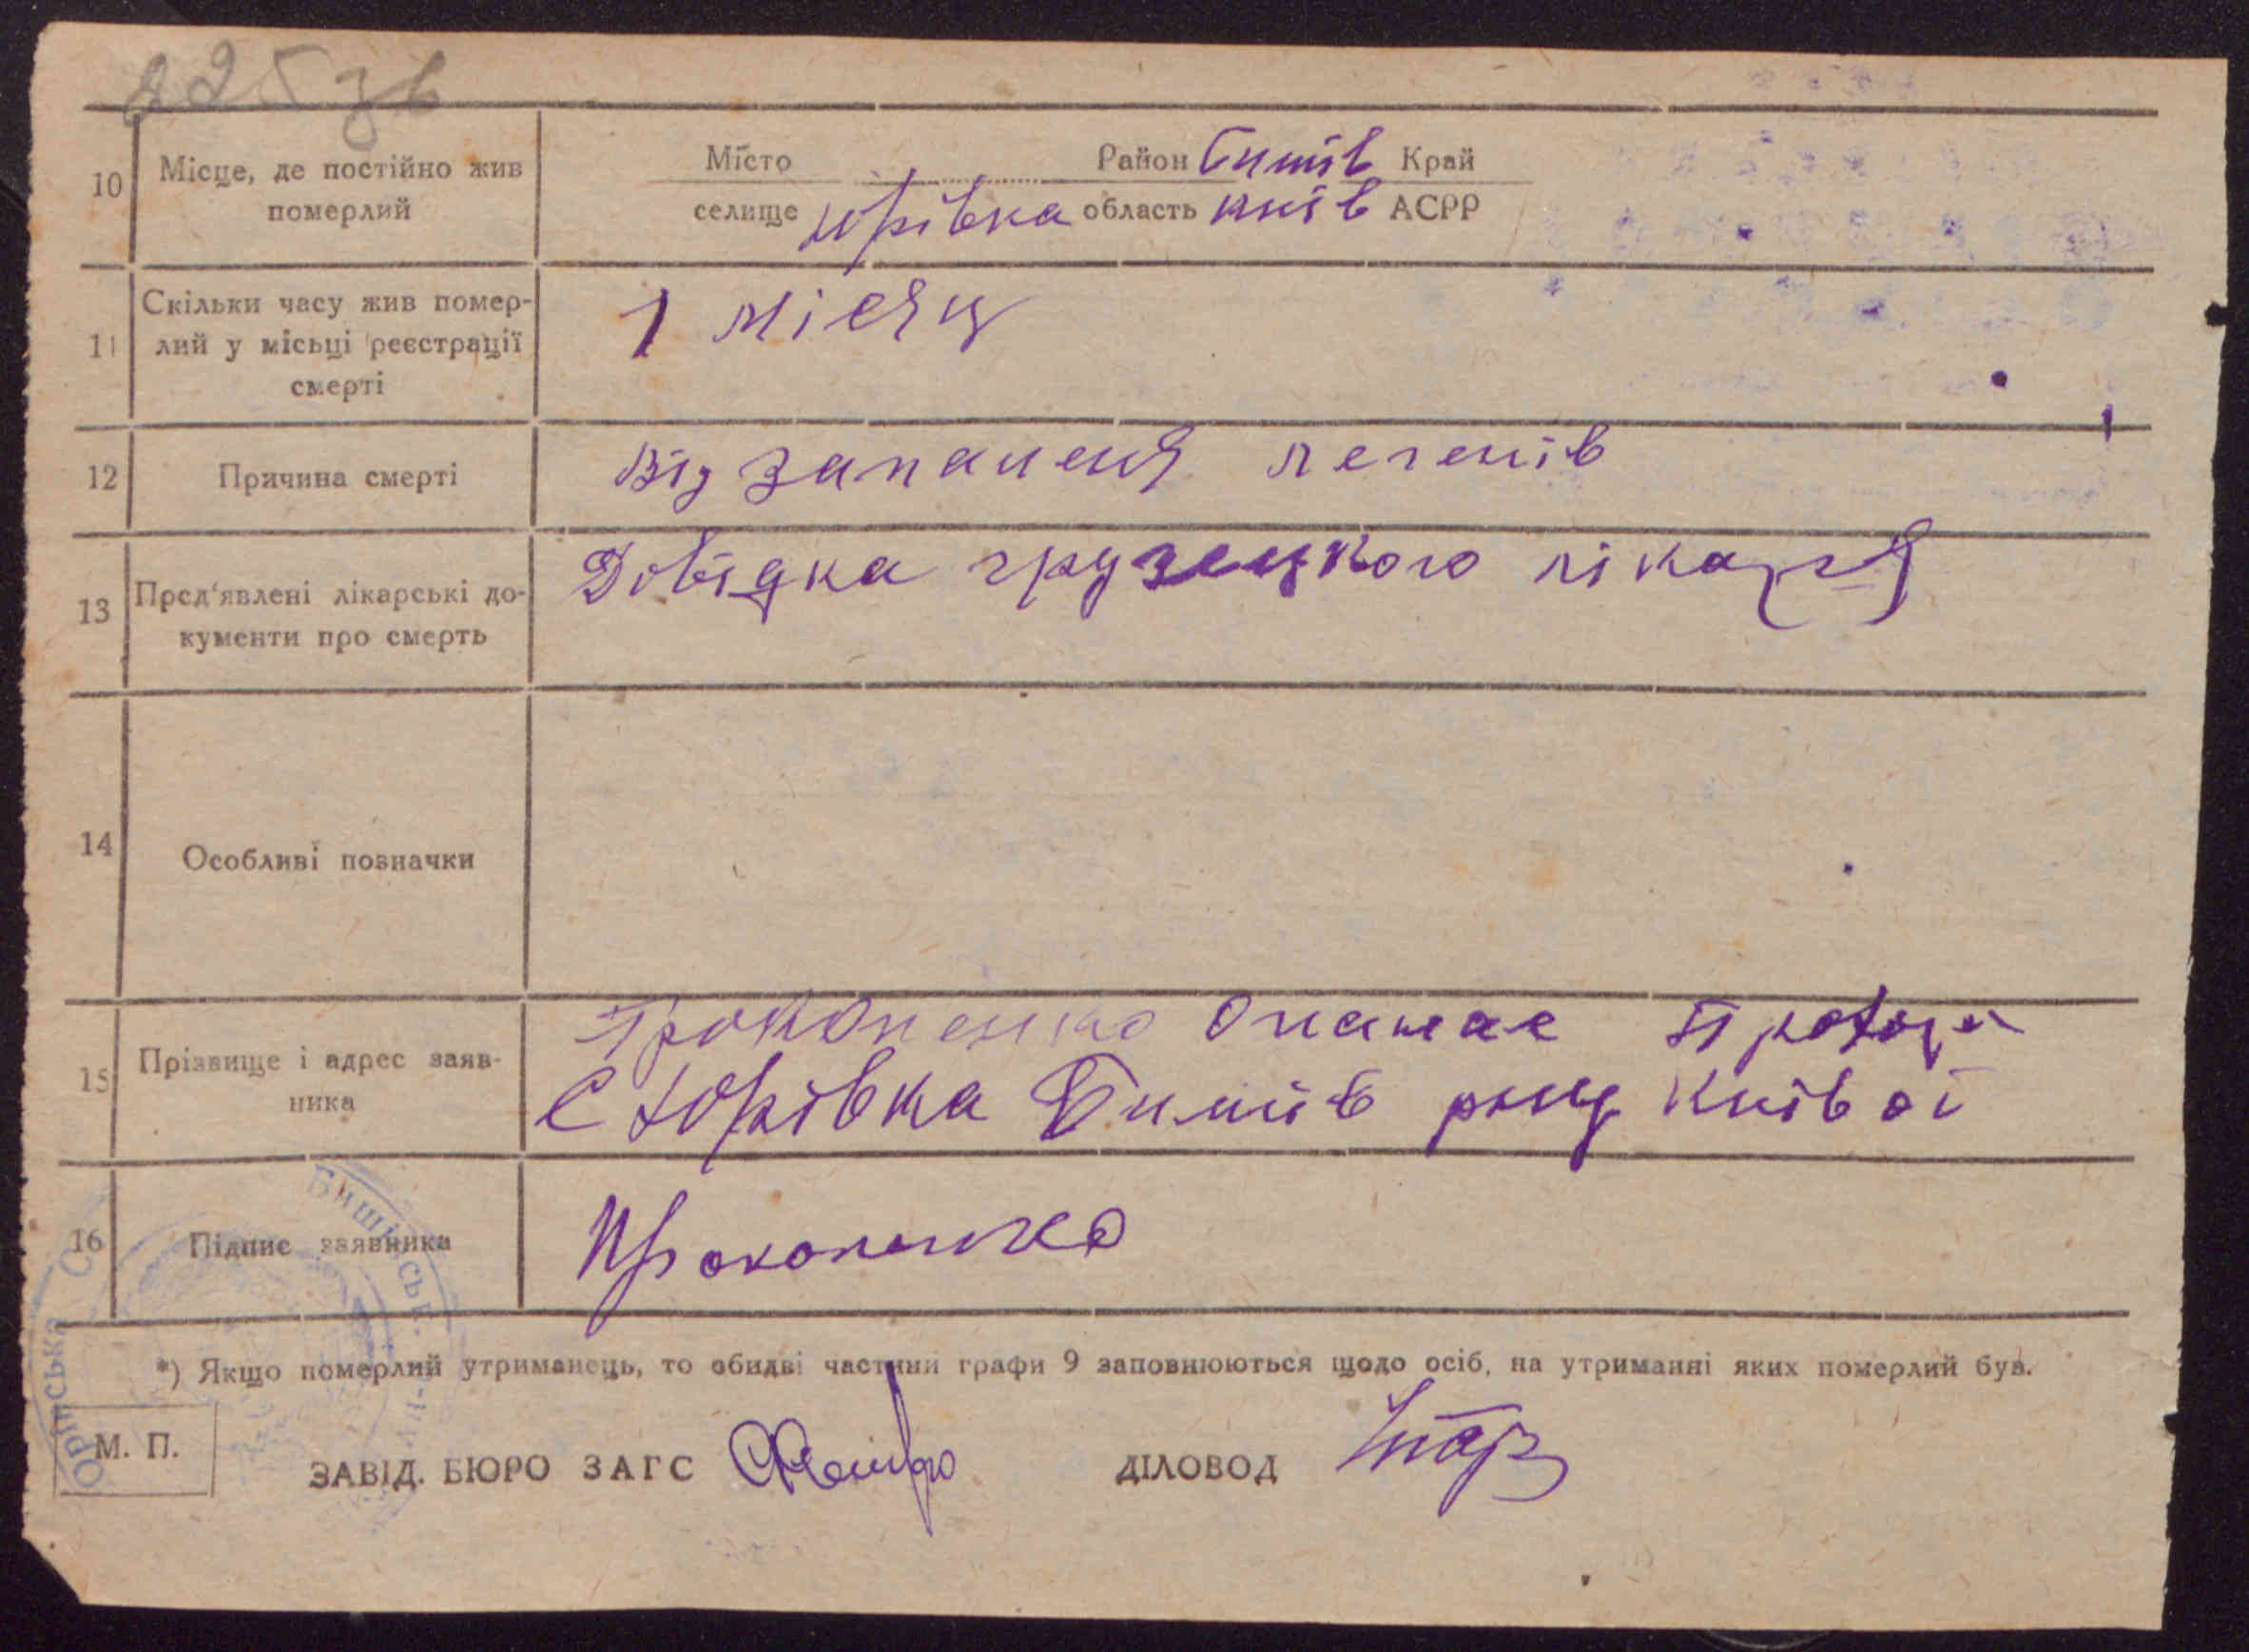 225 зв
10 Місце, де постійно жив померлий
Місто Район Бишів Край
селище Юрівка область Київ АСРР
11 Скільки часу жив помер-
лий у місьці реєстрації
смерті
1 місяц
12 Причина смерті
Від запаленя легенів
13 Пред'явлені лікарські до-
кументи про смерть
Довідка грузецкого лікаря
14 Особливі позначки
15 Прізвище і адрес заяв-
ника
Прокопенко Опанас
с Юрівка Бишів рну Київ ої
16 Підпис заявника
Прокопенко
*) Якщо померлий утриманець, то обидві частини графи 9 заповнюються щодо осіб, на утриманні яких померлий був.
М. П.
ЗАВІД. БЮРО ЗАГС
ДІЛОВОД
Бишівськ.